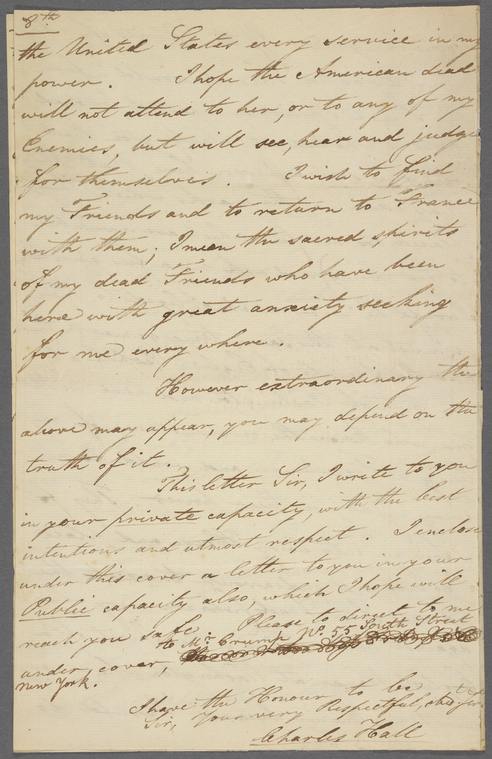 8th
the United States every service in my
power. I hope the American dead
will not attend to her, or to any of my
Enemies, but will see, hear and judge
for themselves. I wish to find
my Friends and to return to France
with them; I mean the sacred spirits
of my dead Friends who have been
here with great anxiety seeking
for me every where.
However extraordinary the
above may appear, you may depend on the
truth of it.
This letter Sir, I write to you
in your private capacity, with the best
intentions and utmost respect. I enclose
under this cover a letter to you in your
Public capacity also, which I hope will
reach you safe. Please to direct to me
under cover, to Mr. Crump No. 55 South Street
New York.
I have the Honour to be
Sir, Your very Respectful,
Charles Hall